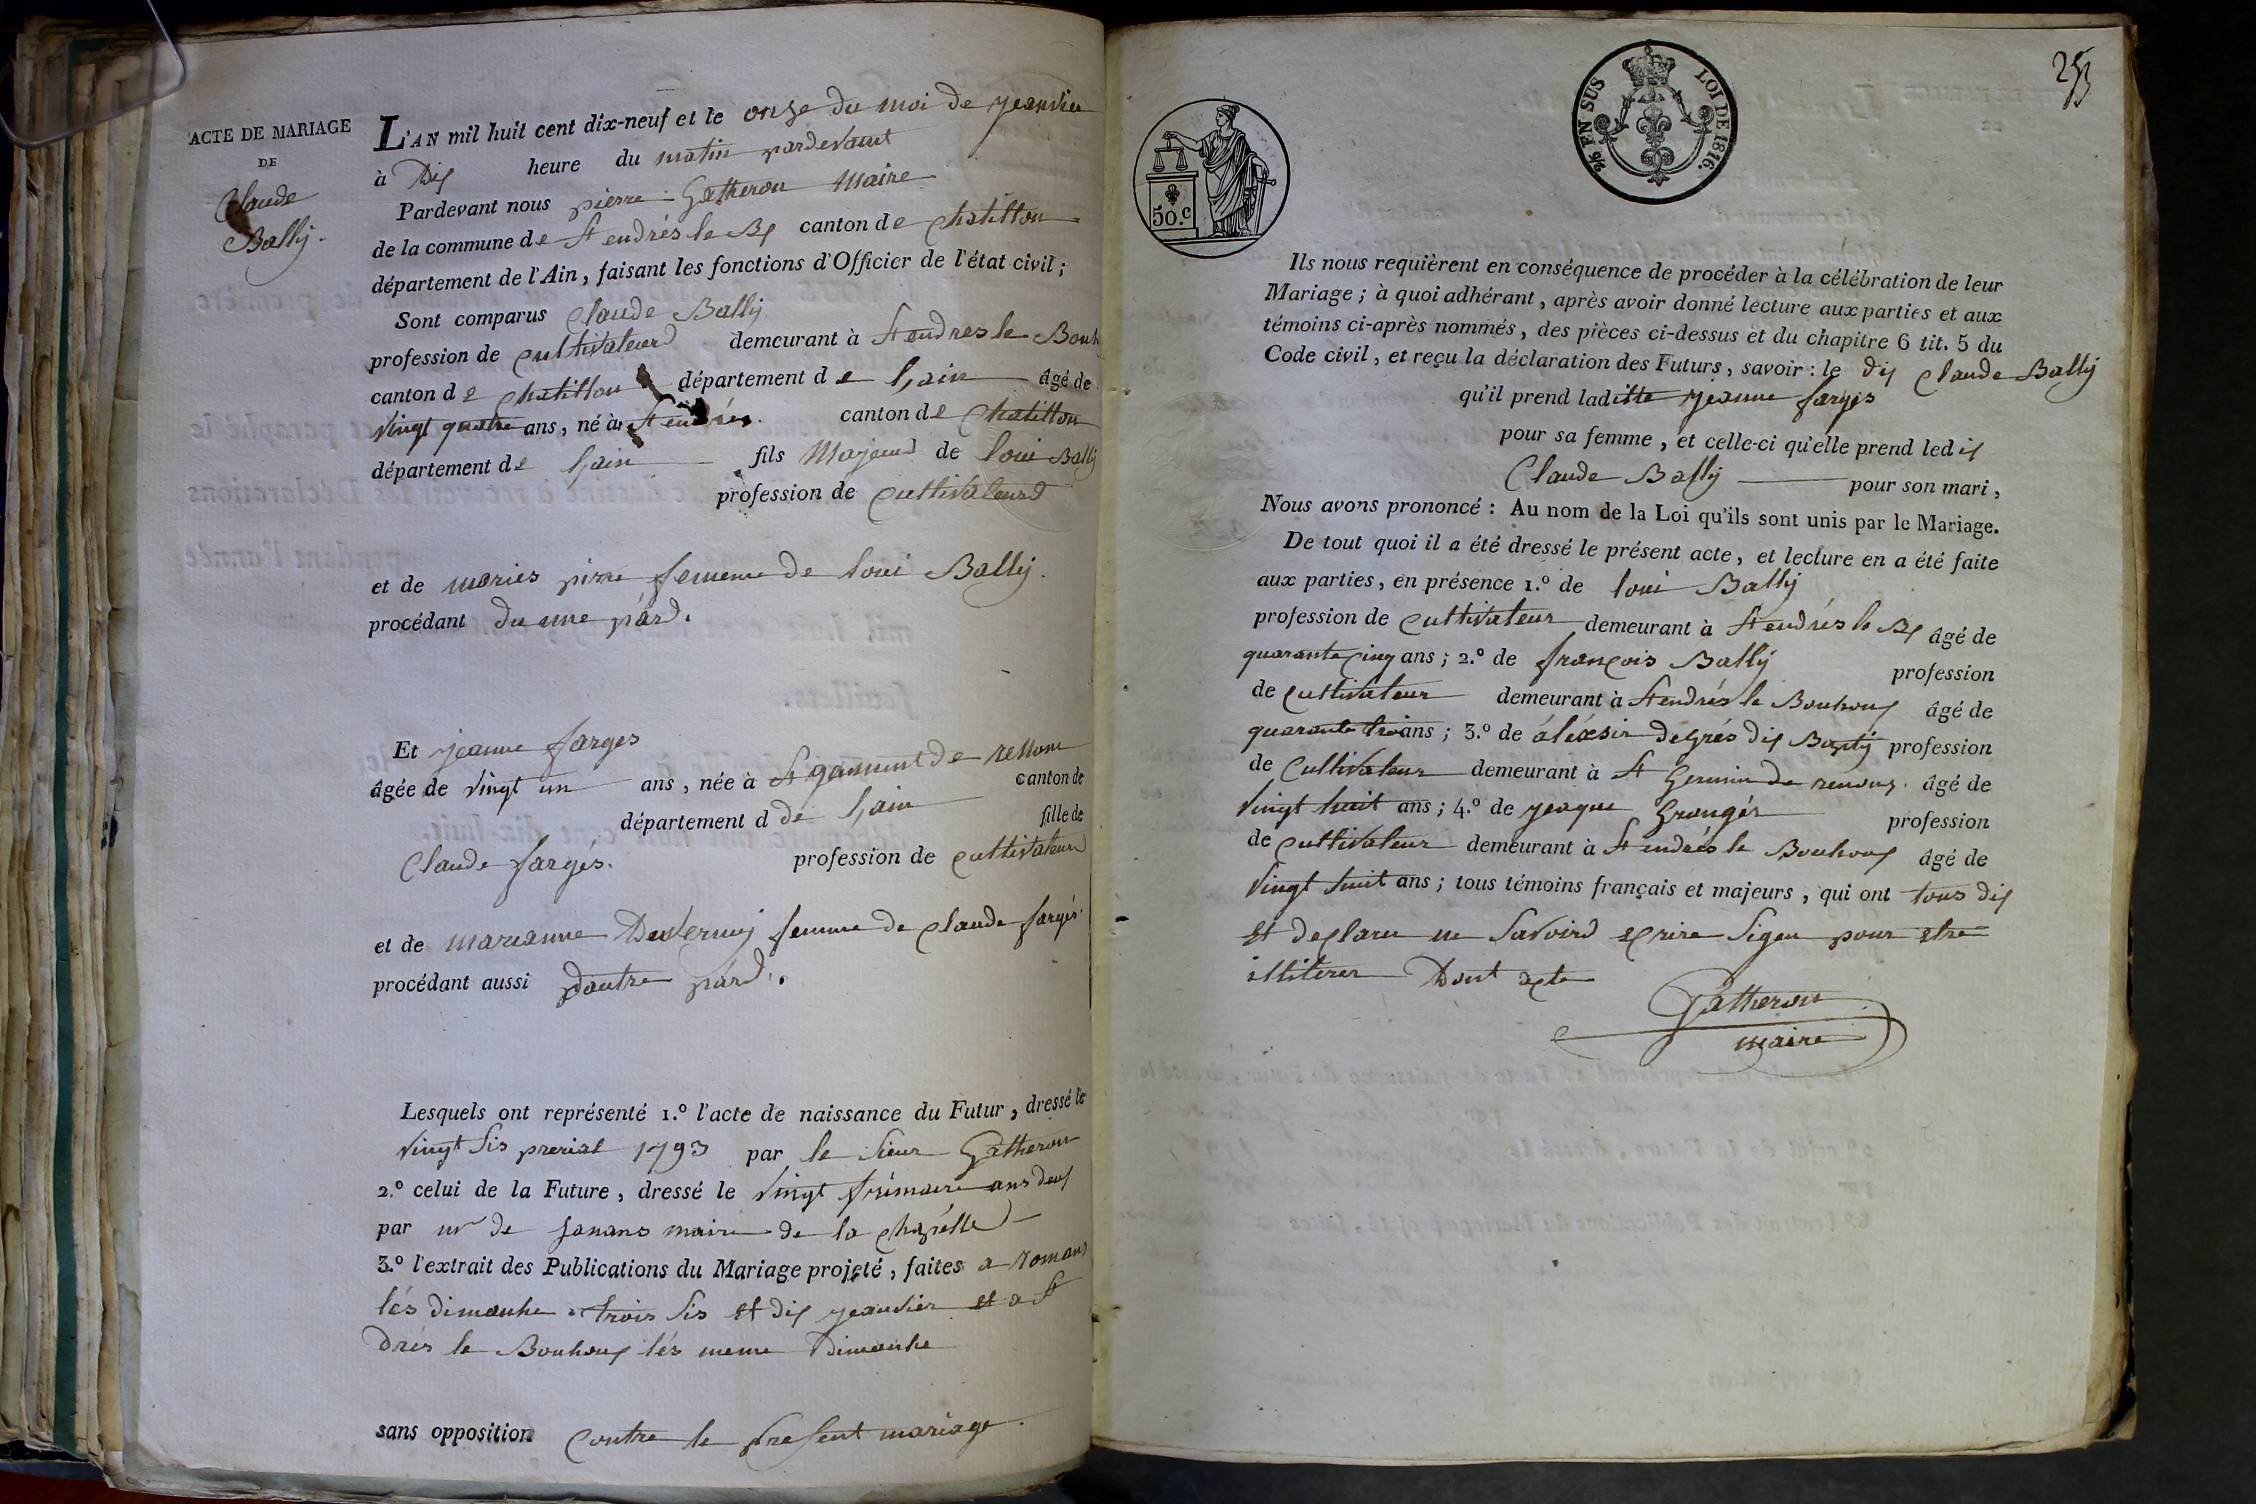 ACTE DE MARIAGE
DE
Claude
Bally.
L'AN mil huit cent dix-neuf et le onze du moi de jeanvier
à Dix heure du matin pardevant
Pardevant nous pierre Gatheron Maire
de la commune de St endrés le Bx canton de Chatillon
département de l'Ain, faisant les fonctions d'Officier de l'état civil;
Sont comparus Claude Bally
profession de Cultivateurd demeurant à St endres le Bouh
canton de Chatillon département de l,ain âgé de
vingt quatre ans, né à St endrés. canton de Chatillon
département de l,ain fils Majeurd de loui Bally
profession de Cultivateurd
et de maries pirre femme de loui Bally.
procédant du une pard.
Et jeanne farges
âgée de vingt un ans, née à St garmint de renom
canton de
département d de l,ain fille de
Claude fargés. profession de Cultivateurd
et de marianne Duvernay femme de Claude fargés
procédant aussi dautre pard.
Lesquels ont représenté 1.º l'acte de naissance du Futur, dressé le
vingt sis prerial 1793 par le sieur Gatheron
2.º celui de la Future, dressé le vingt frimaire ans deux
par mr de maire de la Chapelle
3.º l'extrait des Publications du Mariage projeté, faites a romans
lés dimanhe trois sis et dix jeanvier et a St
drés le Bouhoux lés meme Dimanhe
sans opposition Contre le present mariage.
253
50.c
96 EN SUS
LOI DE 1816.
Ils nous requièrent en conséquence de procéder à la célébration de leur
Mariage; à quoi adhérant, après avoir donné lecture aux parties et aux
témoins ci-après nommés, des pièces ci-dessus et du chapitre 6 tit. 5 du
Code civil, et reçu la déclaration des Futurs, savoir: le dix Claude Bally
qu'il prend laditte jeanne farges
pour sa femme, et celle-ci qu'elle prend ledix
Claude Bally pour son mari,
Nous avons prononcé: Au nom de la Loi qu'ils sont unis par le Mariage.
De tout quoi il a été dressé le présent acte, et lecture en a été faite
aux parties, en présence 1.º de loui Bally
profession de Cultivateur demeurant à St endrés le Bx âgé de
quarante cinq ans; 2.º de françois Bally profession
de Cultivateur demeurant à St endrés le Bouhoux âgé de
quarante trois ans; 3.º de áléxsir degrés dix profession
de Cultivateur demeurant à St Germin de renom. âgé de
vingt huit ans; 4.º de jeaque Grangér profession
de Cultivateur demeurant à St endrés le Bouhoux âgé de
vingt huit ans; tous témoins français et majeurs, qui ont tous dix
et declaru ne savoird ecrire sigeu pour etre
illiterer Dont acte
Gatheron
maire